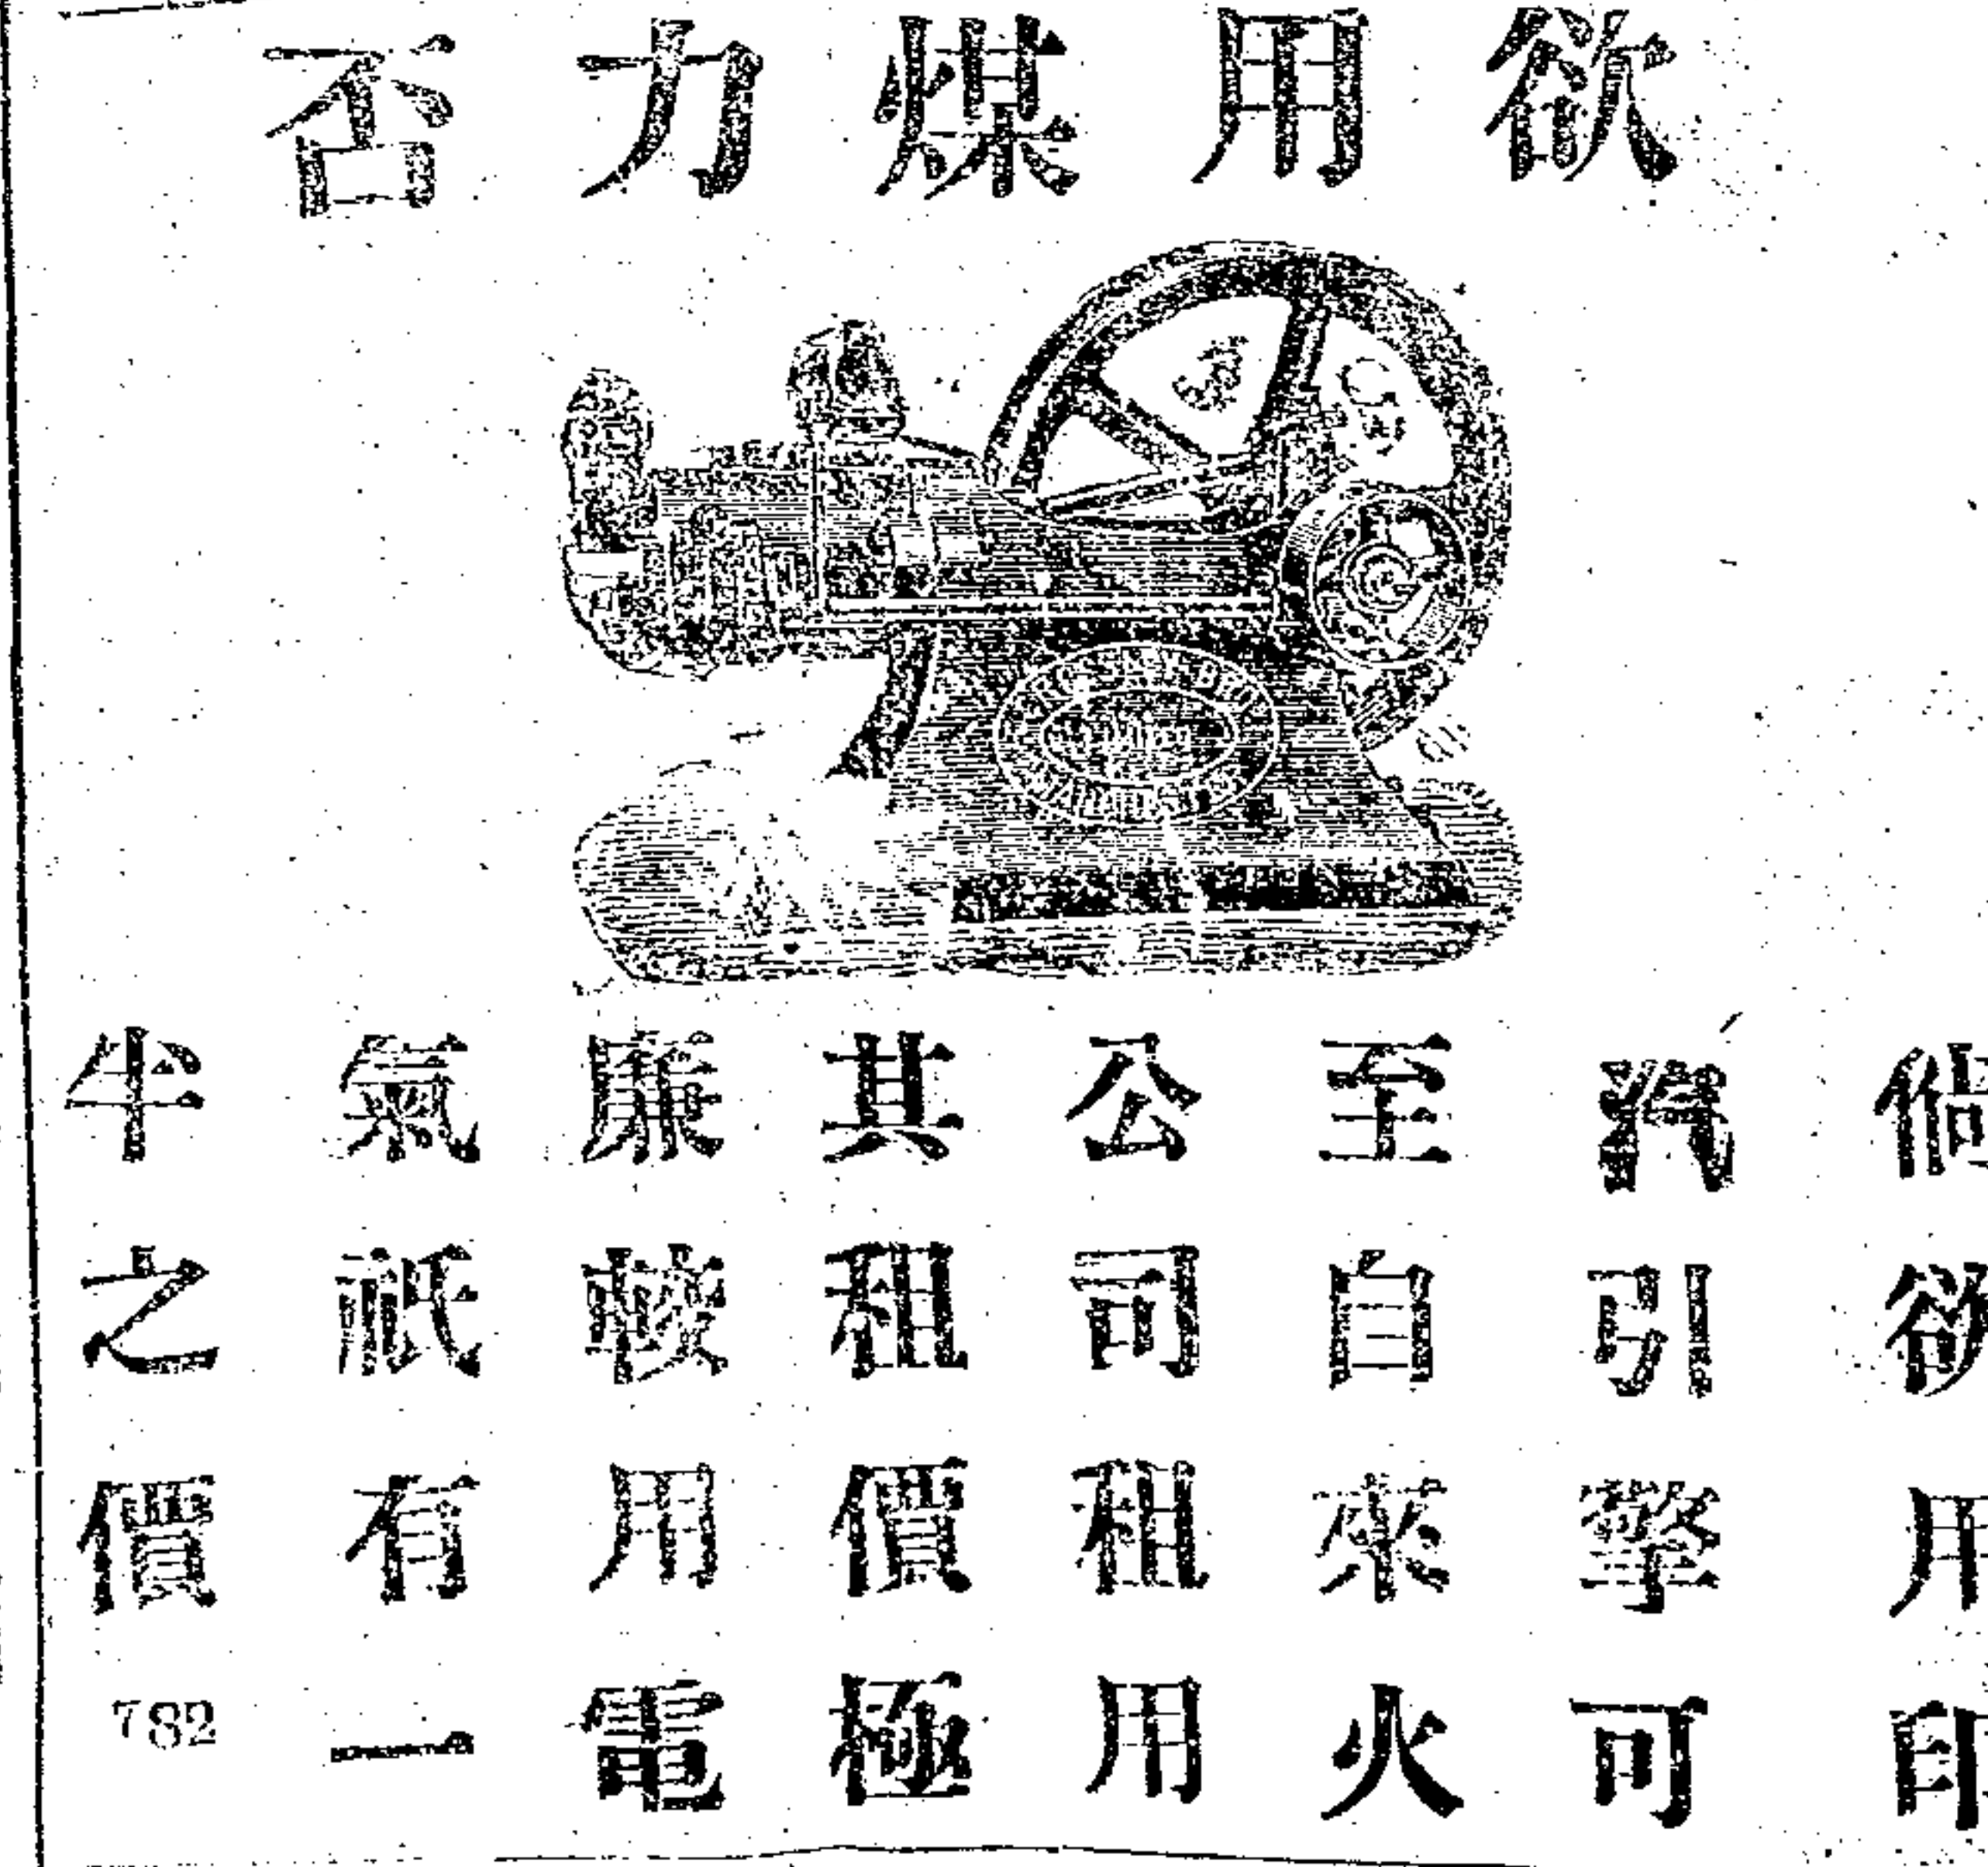 欲用煤力否
倘欲用印
汽引擎可
至自來火
公司租用
其租價極
廉較用電
氣祇有一
半之價
782